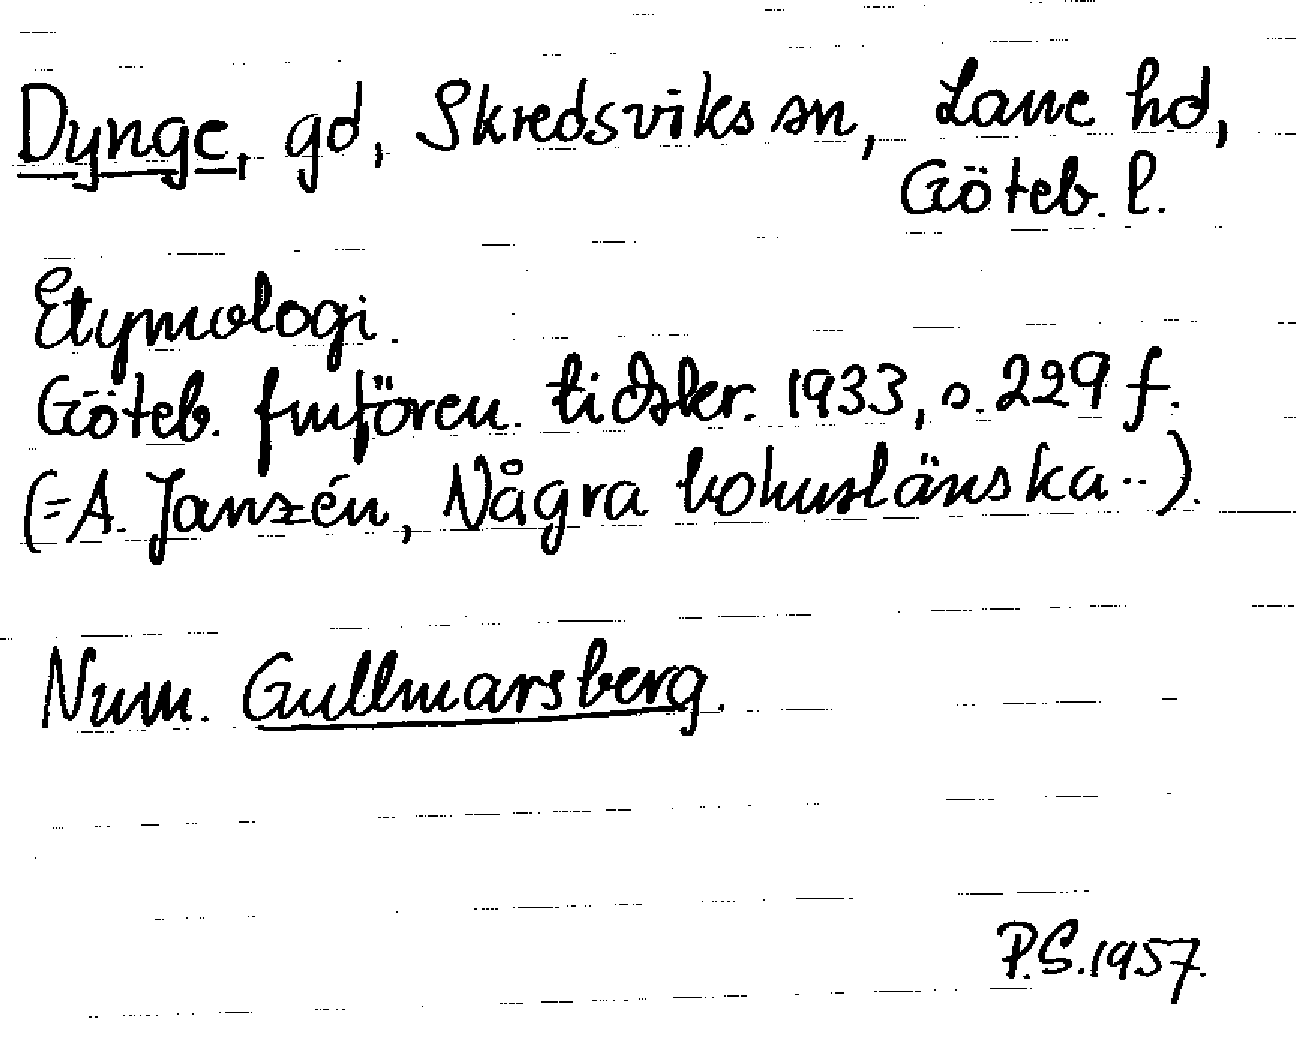 Dynge, gd, Skredsviks sn, Lane hd,
Göteb. l.
Etymologi.
Göteb. fmfören. tidskr. 1933, s. 229 f.
(= A. Janzén, Några bohuslänska ..).
Num. Gullmarsberg.
P.S. 1957.